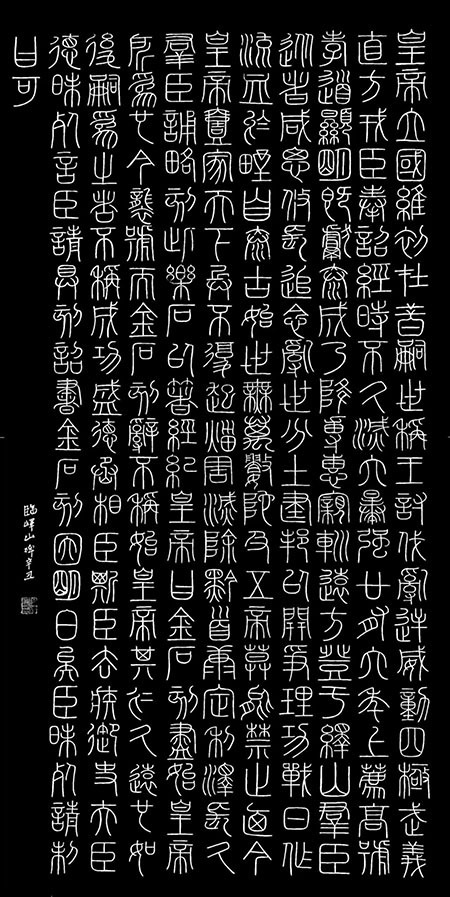 皇帝立國維初在昔嗣世稱王討伐亂逆威動四極武義
直方戎臣奉詔經時不久滅六暴強廿有六年上薦高號
孝道顯明既獻泰成乃降尃惠親巡遠方登于繹山群臣
從者咸思攸長追念亂世分土建邦以開爭理功戰日作
流血於野自泰古始世無萬數陀及五帝莫能禁止迺今
皇帝壹家天下兵不復起災害滅除黔首康定利澤長久
群臣誦略刻此樂石以著經紀皇帝曰金石刻盡始皇帝
所為也今襲號而金石刻辭不稱始皇帝其於久遠也如
後嗣為之者不稱成功盛德丞相臣斯臣去疾御史夫臣
德昧死言臣請具刻詔書金石刻因明白矣臣昧死請制
曰可
臨嶧山碑辛丑